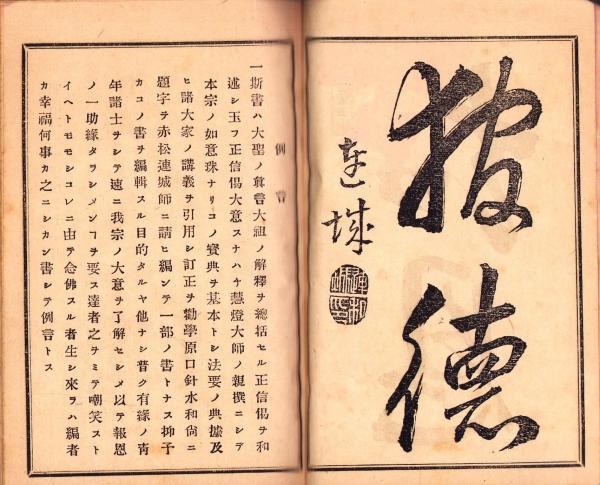 披德
連城
例言
一斯書ハ大聖ノ眞言大祖ノ解釋ヲ總括セル正信偈ヲ和
述シ玉フ正信偈大意スナハチ慧燈大師ノ親撰ニシテ
本宗ノ如意珠ナリコノ寶典ヲ基本トシ法要ノ典據及
ヒ諸大家ノ講義ヲ引用シ訂正ヲ勸學原口針水和尙ニ
題字ヲ赤松連城師ニ請ヒ編ンテ一部ノ書トナス抑予
カコノ書ヲ編輯スル目的タルヤ他ナシ普ク有緣ノ靑
年諸士ヲシテ速ニ我宗ノ大意ヲ了解セシメ以テ報恩
ノ一助緣タラシメンヿヲ要ス達者之ヲミテ嘲笑スト
イヘトモモシコレニ由テ念佛スル者生シ來ラハ編者
カ幸福何事カ之ニシカン書シテ例言トス